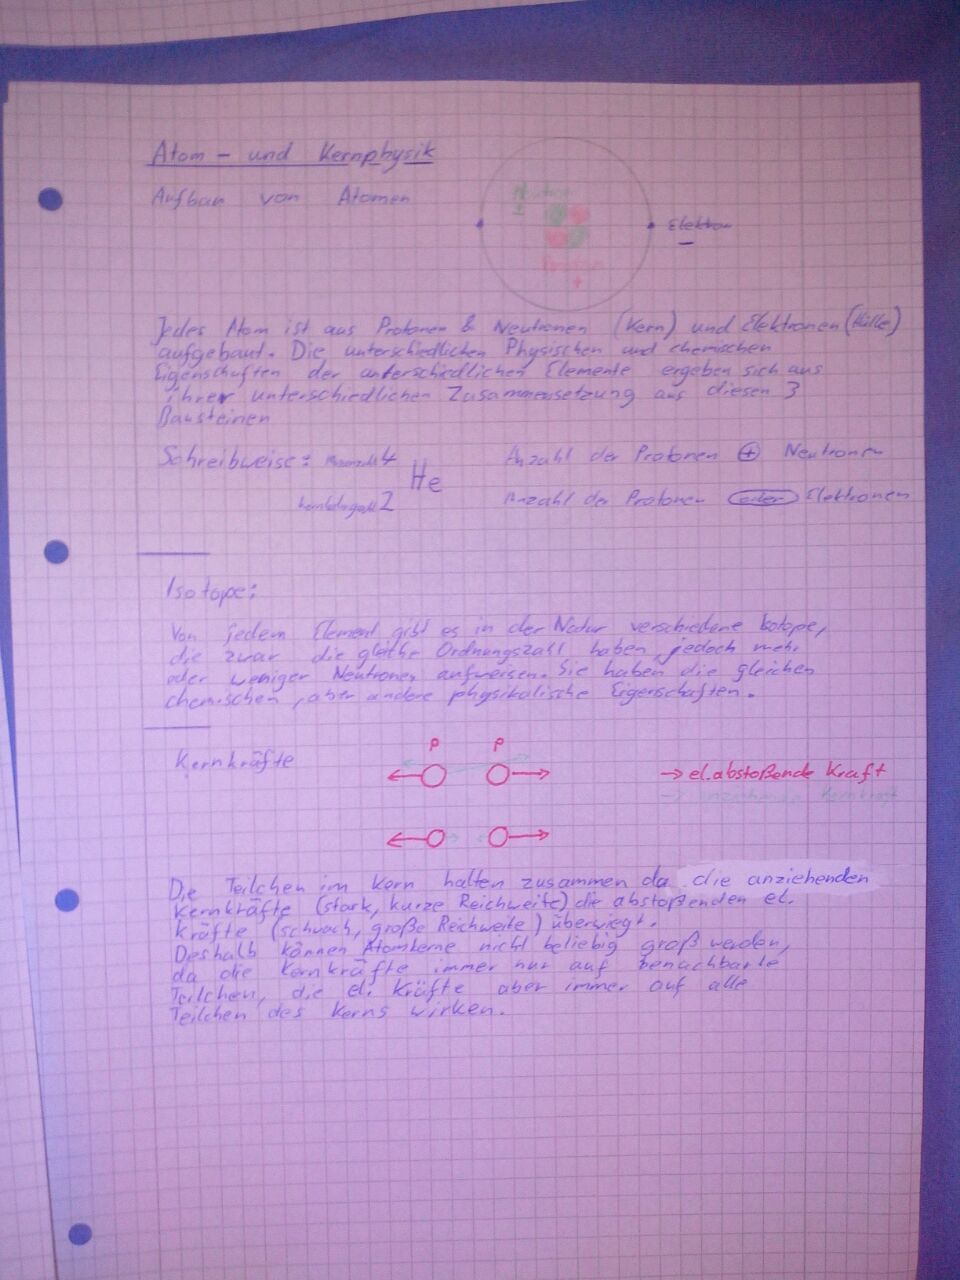 Atom - und Kernphysik
Aufbau von Atomen
Neutron
Elektron
-
Proton
+
Jedes Atom ist aus Protonen & Neutronen (Kern) und Elektronen (Hülle)
aufgebaut. Die unterschiedlichen Physischen und chemischen
Eigenschaften der unterschiedlichen Elemente ergeben sich aus
ihrer unterschiedlichen Zusammensetzung aus diesen 3
Bausteinen
Schreibweise: 4 He Anzahl der Protonen + Neutronen
2 Anzahl der Protonen oder Elektronen
Isotope:
Von jedem Element gibt es in der Natur verschiedene Isotope,
die zwar die gleiche Ordnungszahl haben, jedoch mehr
oder weniger Neutronen aufweisen. Sie haben die gleichen
chemischen, aber andere physikalische Eigenschaften.
P P
Kernkräfte
→ el. abstoßende Kraft
→ anziehende Kernkraft
Die Teilchen im Kern halten zusammen da die anziehenden
Kernkräfte (stark, kurze Reichweite) die abstoßenden el.
Kräfte (schwach, große Reichweite) überwiegt.
Deshalb können Atomkerne nicht beliebig groß werden,
da die Kernkräfte immer nur auf benachbarte
Teilchen, die el. Kräfte aber immer auf alle
Teilchen des Kerns wirken.